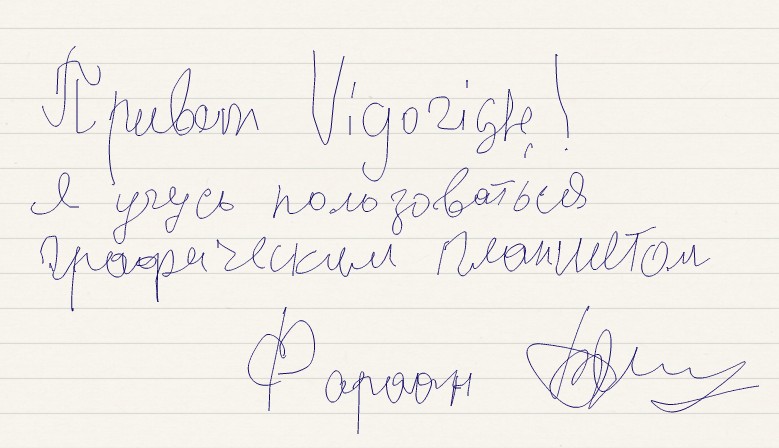 Привет Vigoristle!
я учусь пользоваться
графическим планшетом
Фараон